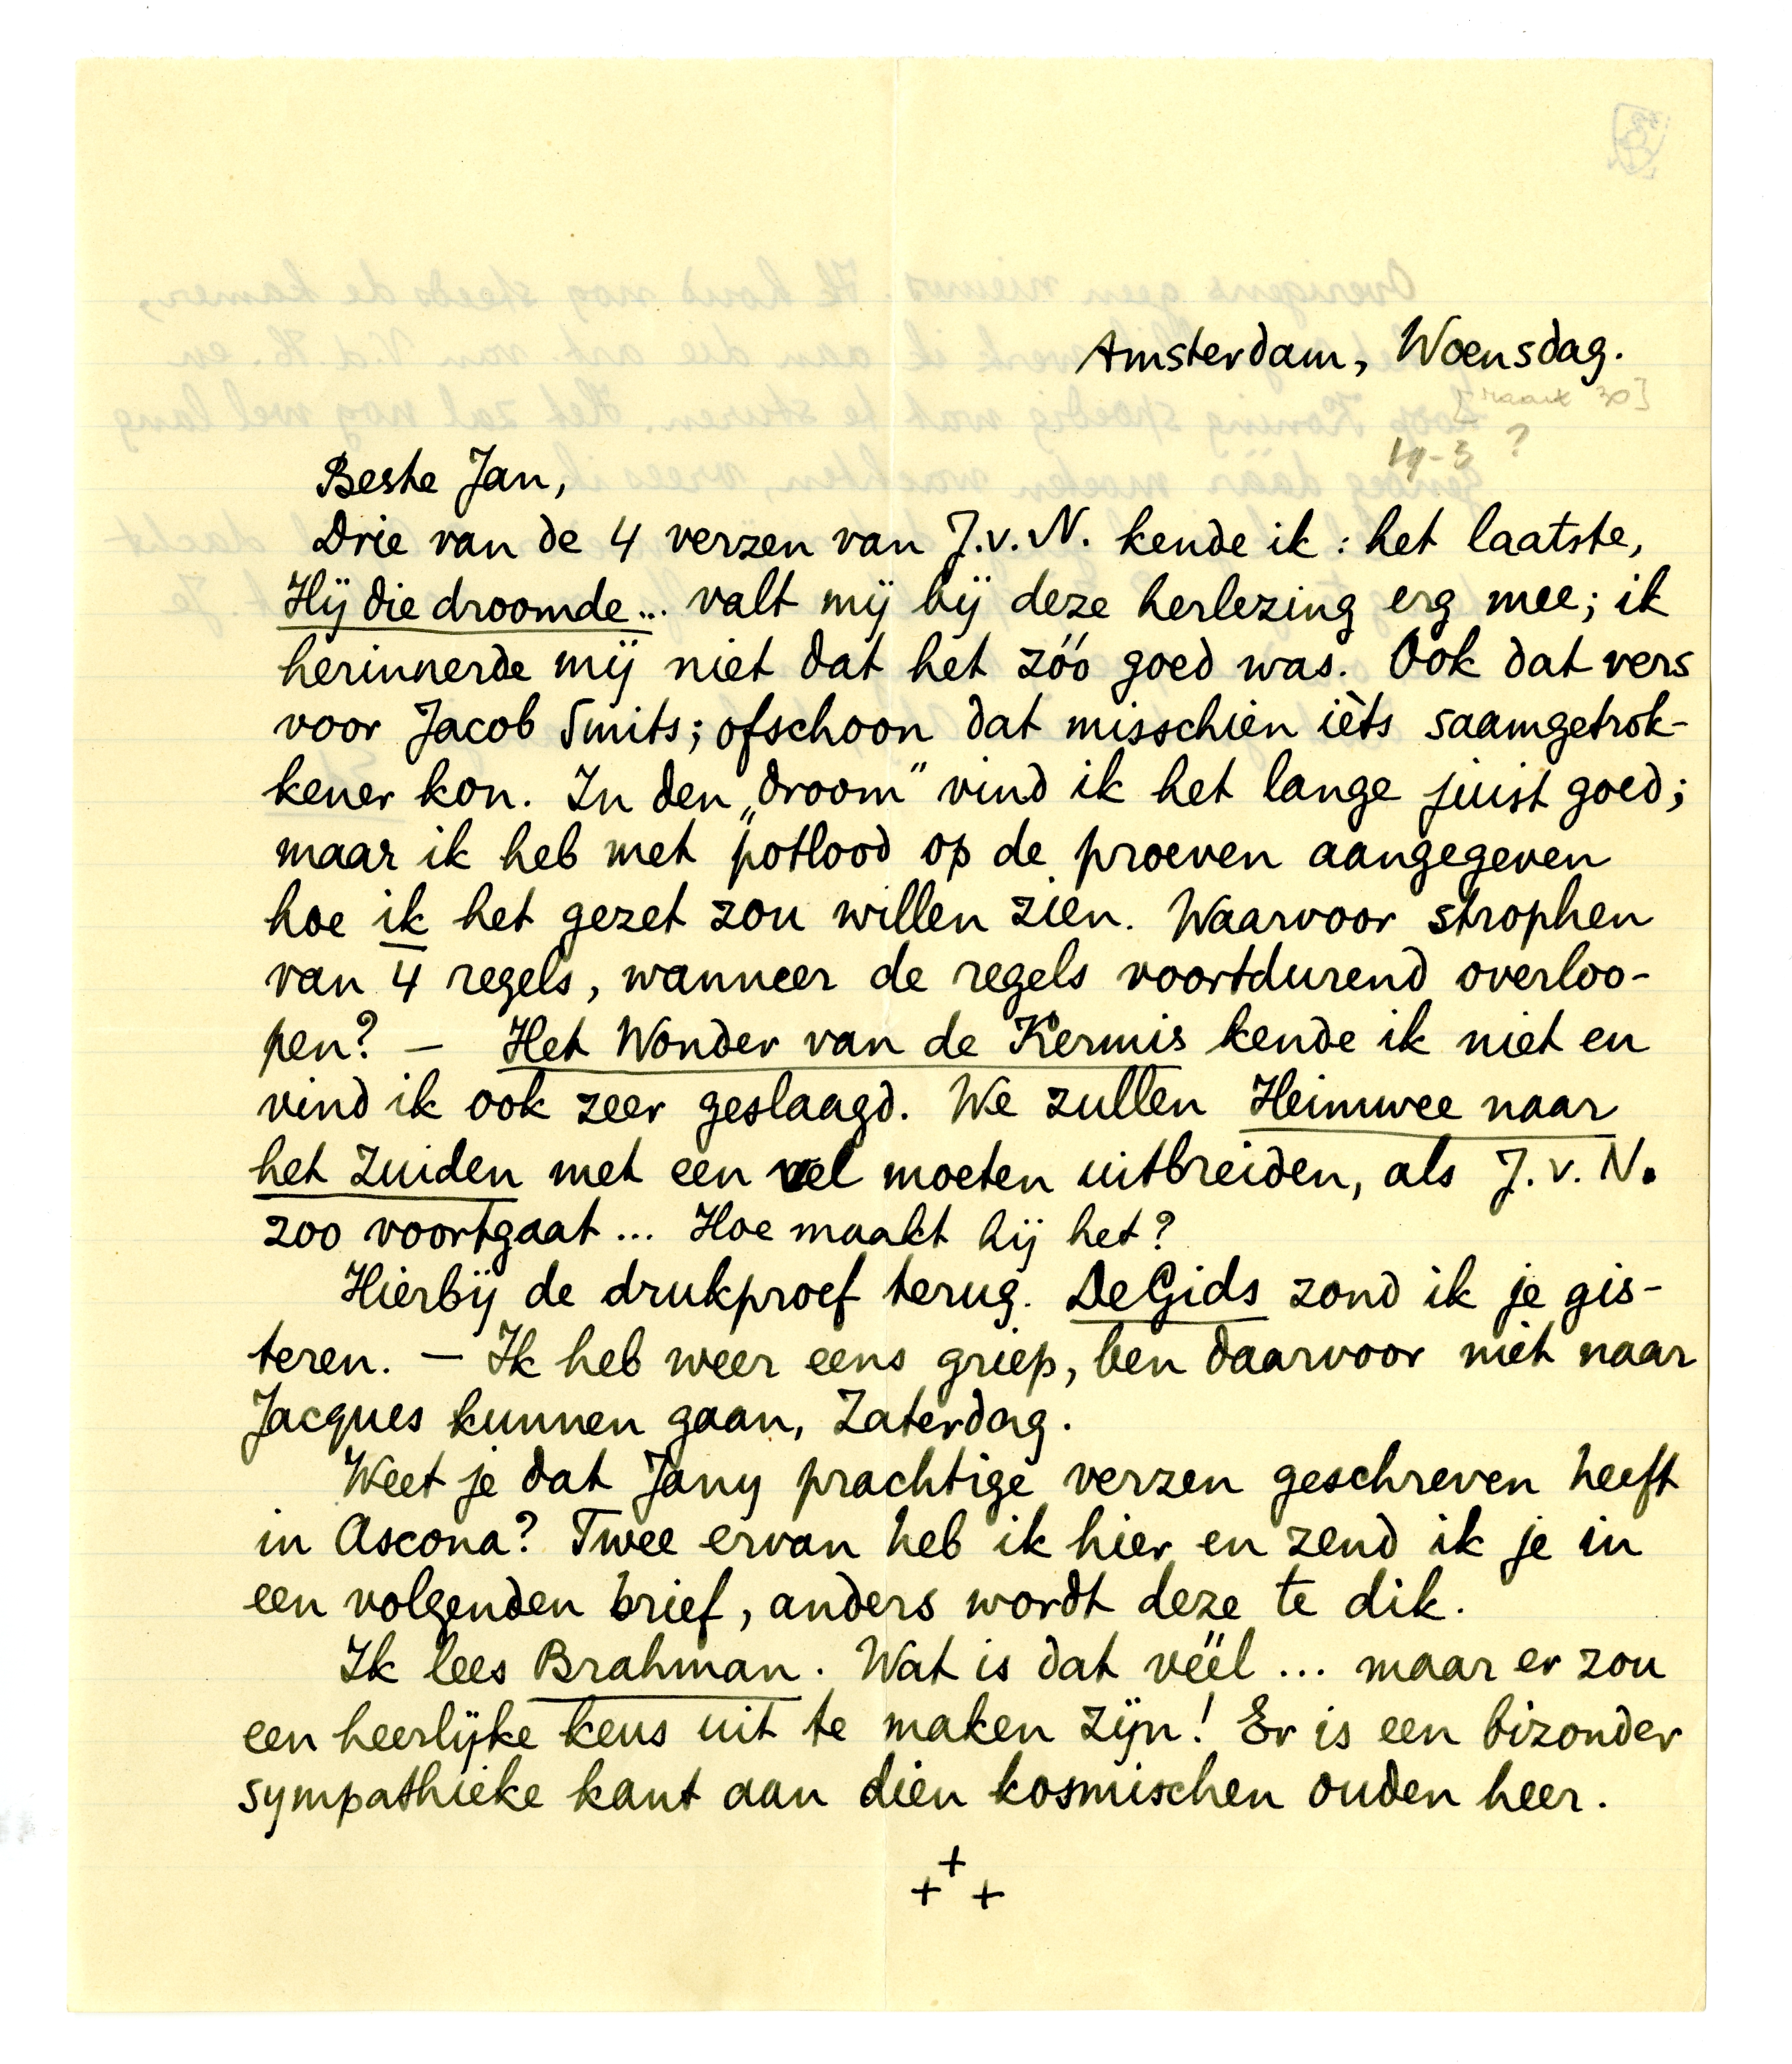 Amsterdam, Woensdag.
[maart 30]
19-3 ?
Beste Jan,
Drie van de 4 verzen van J.v.N. kende ik : het laatste,
Hij die droomde... valt mij bij deze herlezing erg mee; ik
herinnerde mij niet dat het zóó goed was. Ook dat vers
voor Jacob Smits; ofschoon dat misschien ièts saamgetrok-
kener kon. In den „droom" vind ik het lange juist goed;
maar ik heb met potlood op de proeven aangegeven
hoe ik het gezet zou willen zien. Waarvoor strophen
van 4 regels, wanneer de regels voortdurend overloo-
pen? — Het Wonder van de Kermis kende ik niet en
vind ik ook zeer geslaagd. We zullen Heimwee naar
het Zuiden met een vel moeten uitbreiden, als J.v.N.
zoo voortgaat ... Hoe maakt hij het?
Hierbij de drukproef terug. De Gids zond ik je gis-
teren. — Ik heb weer eens griep, ben daarvoor niet naar
Jacques kunnen gaan, Zaterdag.
Weet je dat Jany prachtige verzen geschreven heeft
in Ascona? Twee ervan heb ik hier en zend ik je in
een volgenden brief, anders wordt deze te dik.
Ik lees Brahman. Wat is dat véél ... maar er zou
een heerlijke keus uit te maken zijn! Er is een bizonder
sympathieke kant aan dien kosmischen ouden heer.
+
+ +